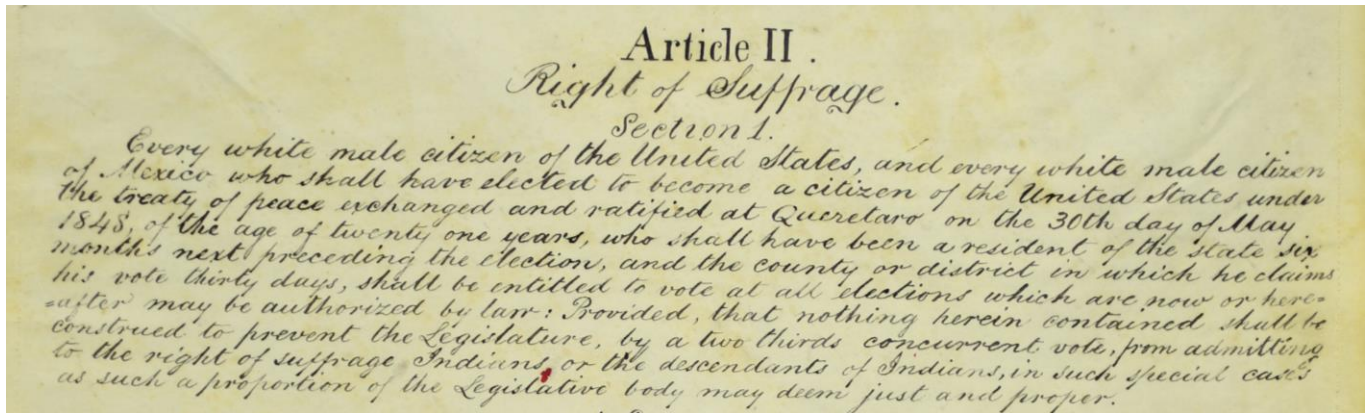 Article II.
Right of Suffrage.
Section 1.
Every white male citizen of the United States, and every white male citizen
of Mexico who shall have elected to become a citizen of the United States under
the treaty of peace exchanged and ratified at Queretaro on the 30th day of May
1848, of the age of twenty one years, who shall have been a resident of the state six
months next preceding the election, and the county or district in which he claims
his vote thirty days, shall be entitled to vote at all elections which are now or here=
=after may be authorized by law: Provided, that nothing herein contained shall be
construed to prevent the Legislature, by a two thirds concurrent vote, from admitting
to the right of suffrage Indians, or the descendants of Indians, in such special cases
as such a proportion of the Legislative body may deem just and proper.